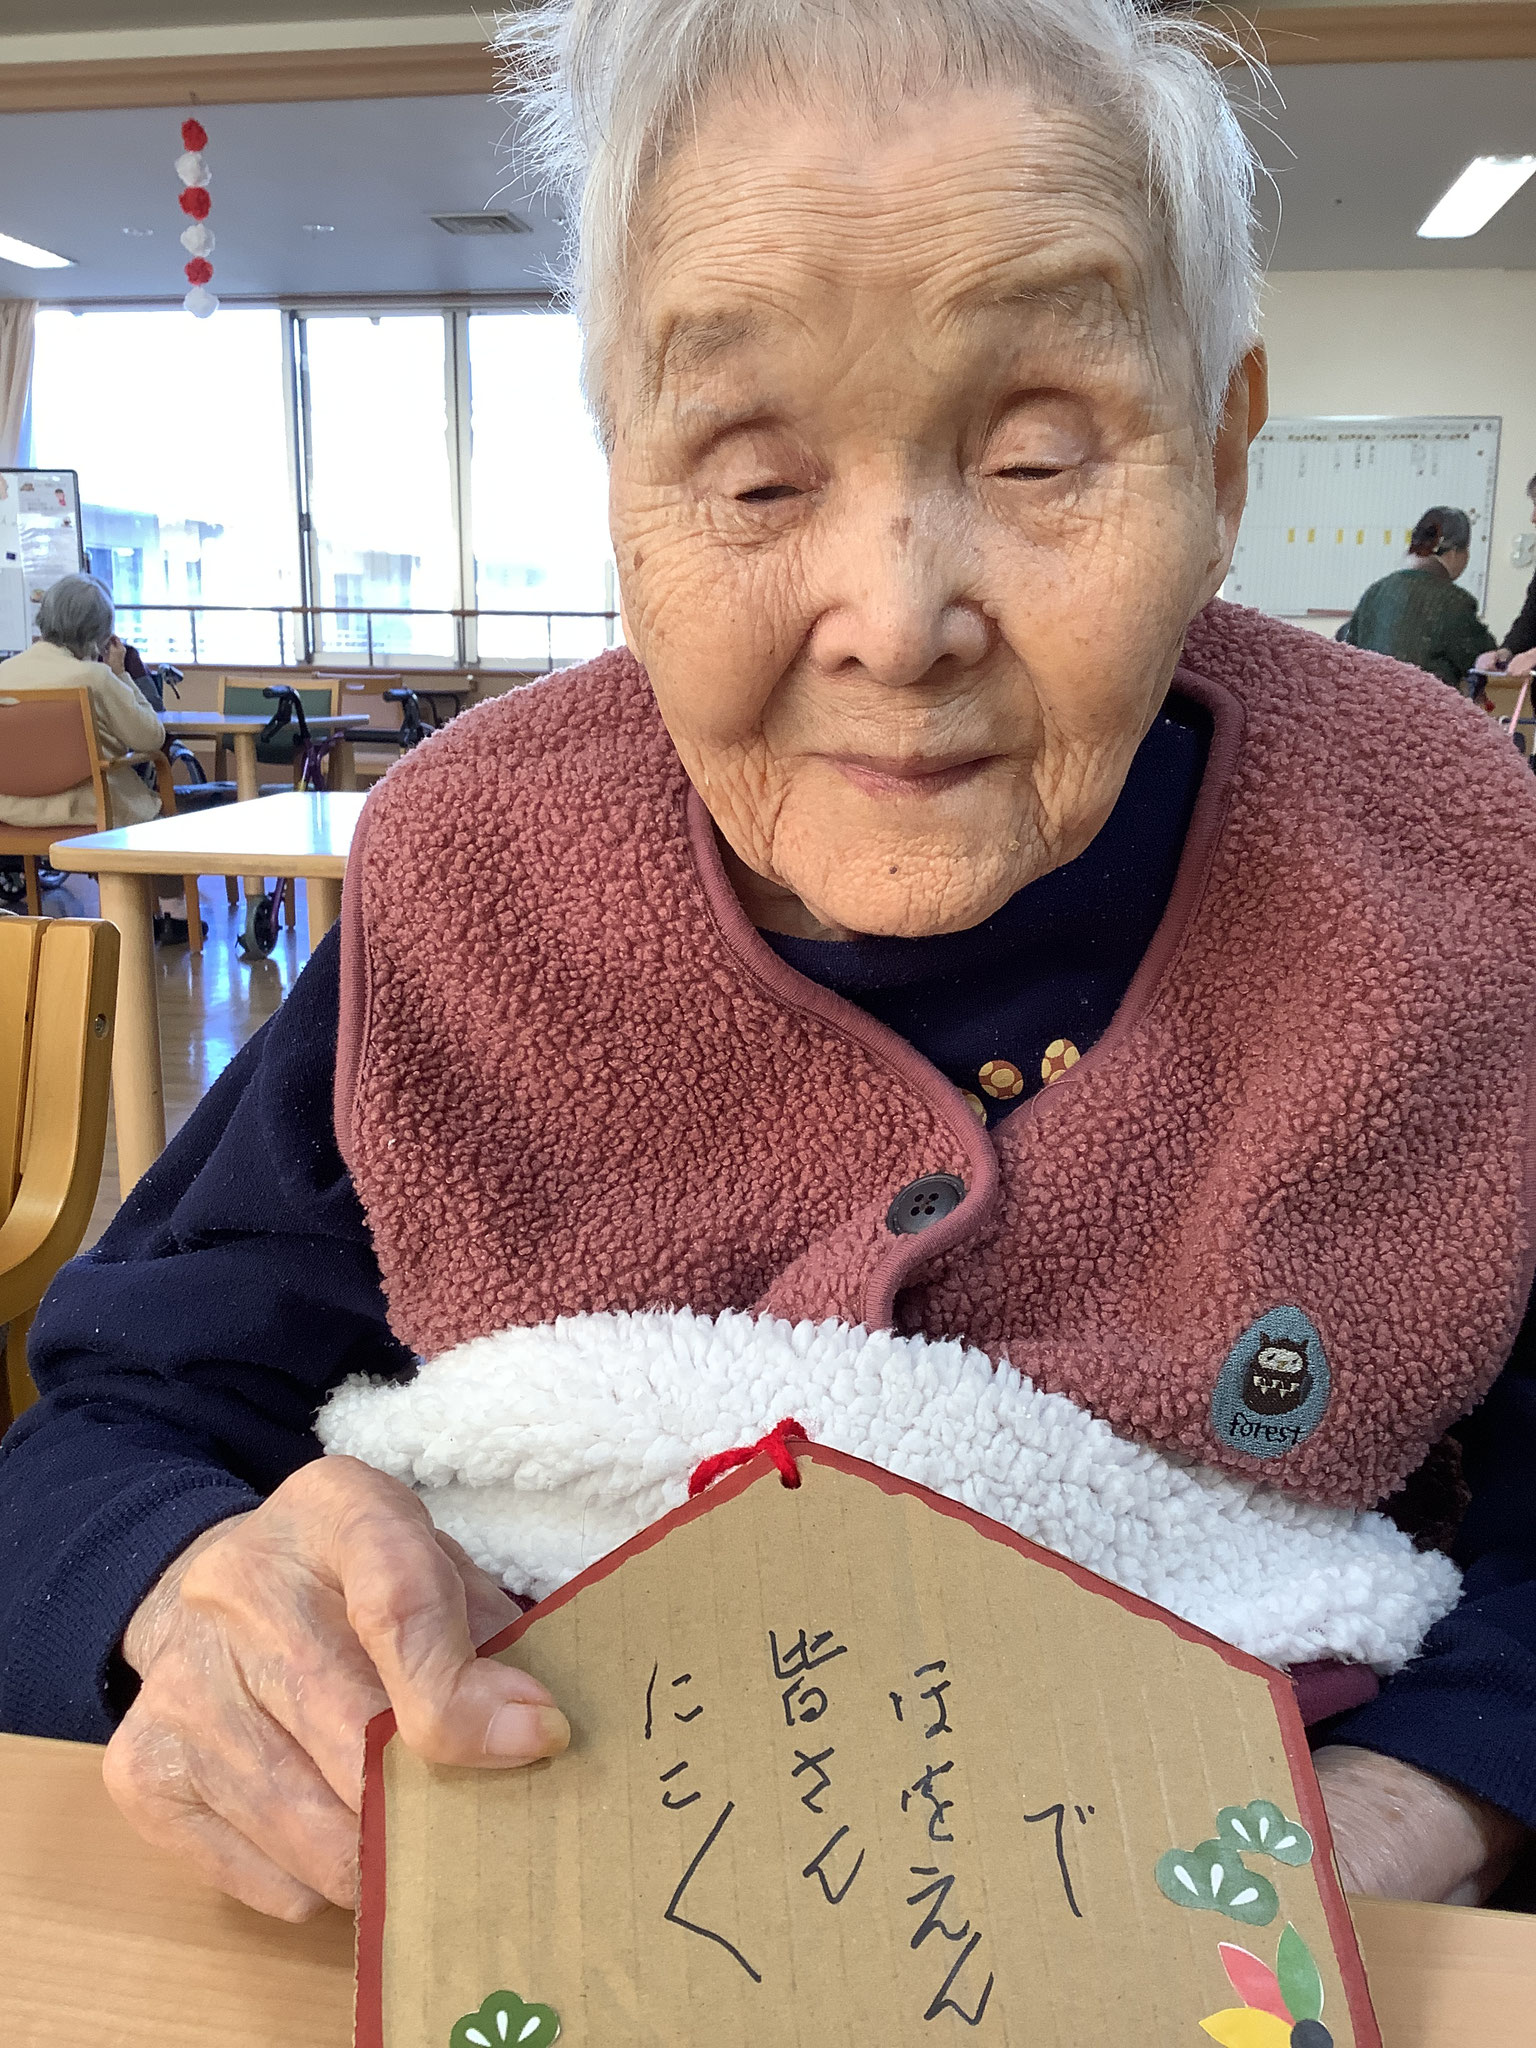 にこ〱
皆さん
ほをえん
で
forest